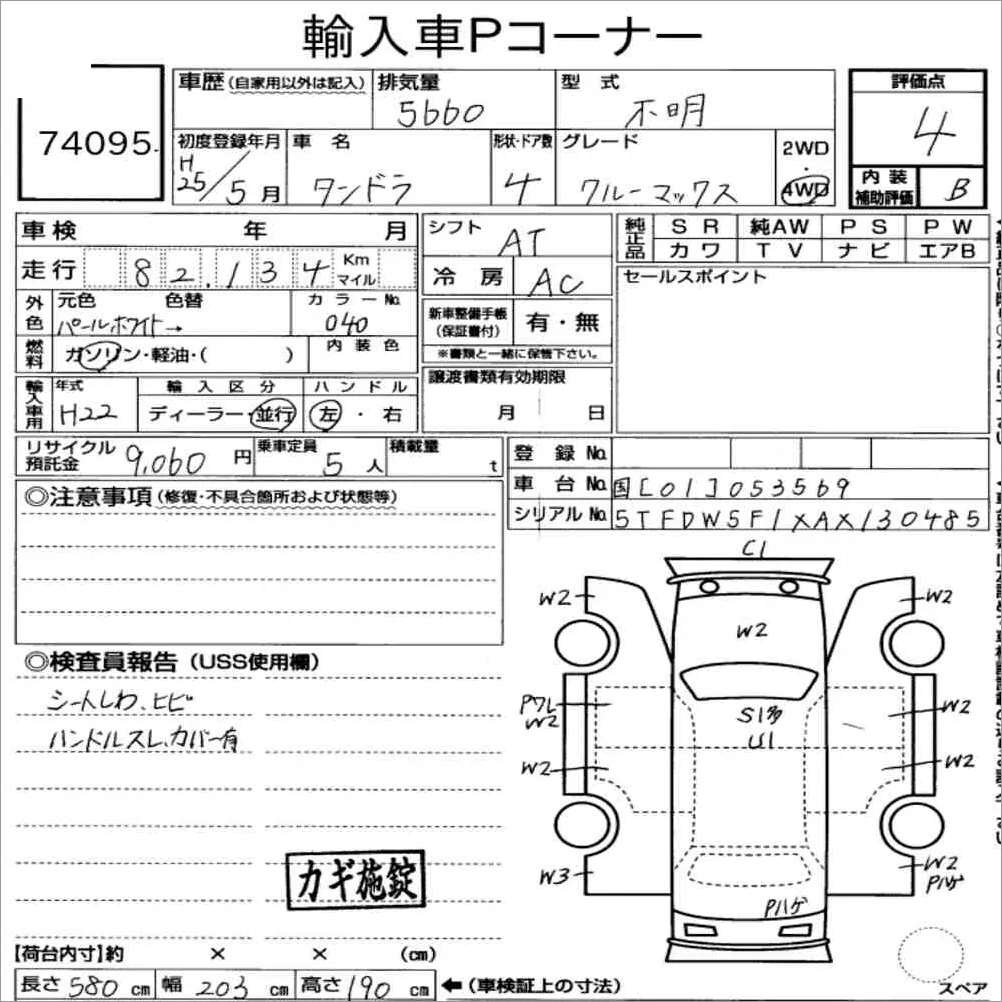 輸入車Pコーナー
74095
車歴(自家用以外は記入) 排気量 型式
5660 不明
評価点
4
初度登録年月 車名 形状・ドア数 グレード 2WD・4WD
H25/5月 タンドラ 4 クルーマックス
内装補助評価 B
車検 年 月
走行 82,134 Km マイル
シフト AT
冷房 AC
純正品 SR 純AW PS PW
カワ TV ナビ エアB
セールスポイント
外色 元色 色替 カラーNo.
パールホワイト→ 040
燃料 ガソリン・軽油・( ) 内装色
新車整備手帳(保証書付) 有・無
※書類と一緒に保管下さい。
輸入車用 年式 輸入区分 ハンドル
H22 ディーラー・並行 左・右
譲渡書類有効期限
月 日
リサイクル預託金 9,060円 乗車定員 5人 積載量 t
登録No.
車台No. 国[01]053569
シリアルNo. 5TFDW5F1XAX130485
◎注意事項(修復・不具合箇所および状態等)
◎検査員報告(USS使用欄)
シートしわ、ヒビ
ハンドルスレ、カバー有
カギ施錠
C1
W2 W2
W2
PワレW2 S1多 W2
U1
W2 W2
W3 W2
Pハゲ
Pハゲ
スペア
【荷台内寸】約 × × (cm)
長さ580cm 幅203cm 高さ190cm ←(車検証上の寸法)